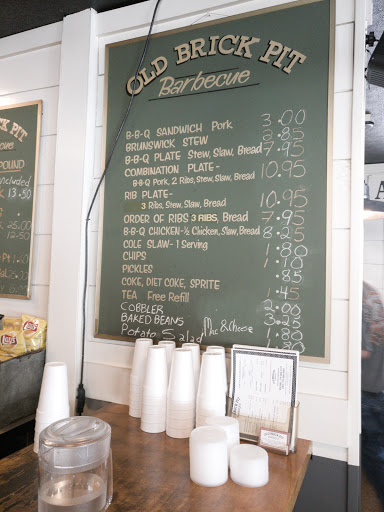 OLD BRICK PIT
Barbecue
B-B-Q SANDWICH Pork 3.00
BRUNSWICK STEW 2.85
B-B-Q PLATE Stew, Slaw, Bread 7.95
COMBINATION PLATE- 10.95
B-B-Q Pork, 2 Ribs, Stew, Slaw, Bread
RIB PLATE- 10.95
3 Ribs, Stew, Slaw, Bread
ORDER OF RIBS 3 RIBS, Bread 7.95
B-B-Q CHICKEN-½ Chicken, Slaw, Bread 8.25
COLE SLAW-1 Serving 1.80
CHIPS 1.00
PICKLES .85
COKE, DIET COKE, SPRITE 1.45
TEA Free Refill 2.00
COBBLER 3.25
BAKED BEANS 1.80
Potato Salad Mac & Cheese 1.80
PIT
ecue
POUND
included
13.50
25.00
12.50
Lay's
Lay's